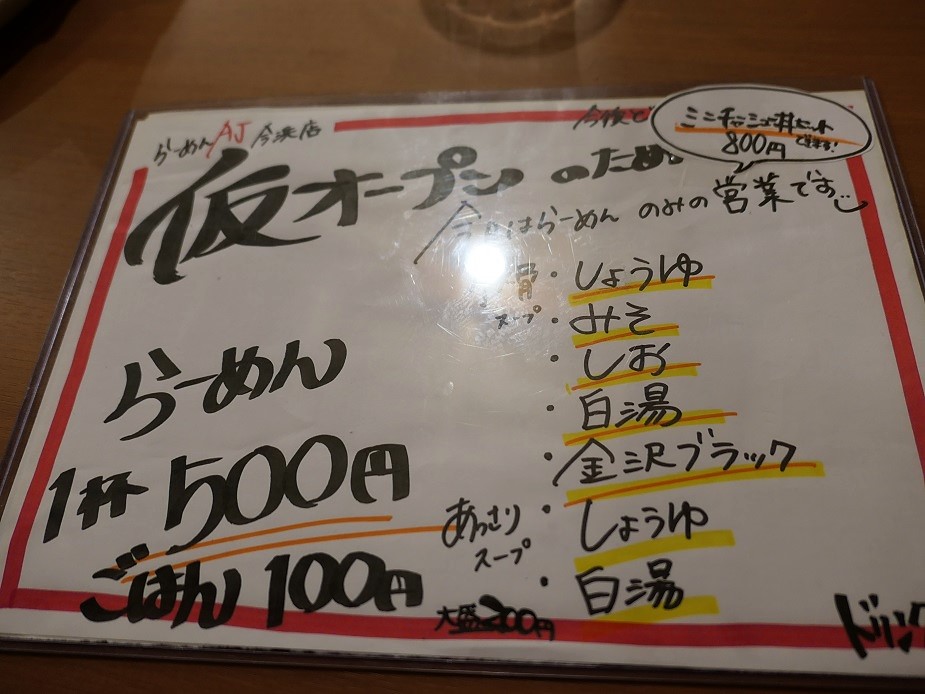 らーめんAJ 今浜店
ミニチャーシュー丼セット
800円 できます!
仮オープンのため
今 はらーめん のみの営業です
骨
スープ
・しょうゆ
・みそ
・しお
・白湯
・金沢ブラック
あっさり
スープ
・しょうゆ
・白湯
らーめん
1杯 500円
ごはん 100円
大盛200円